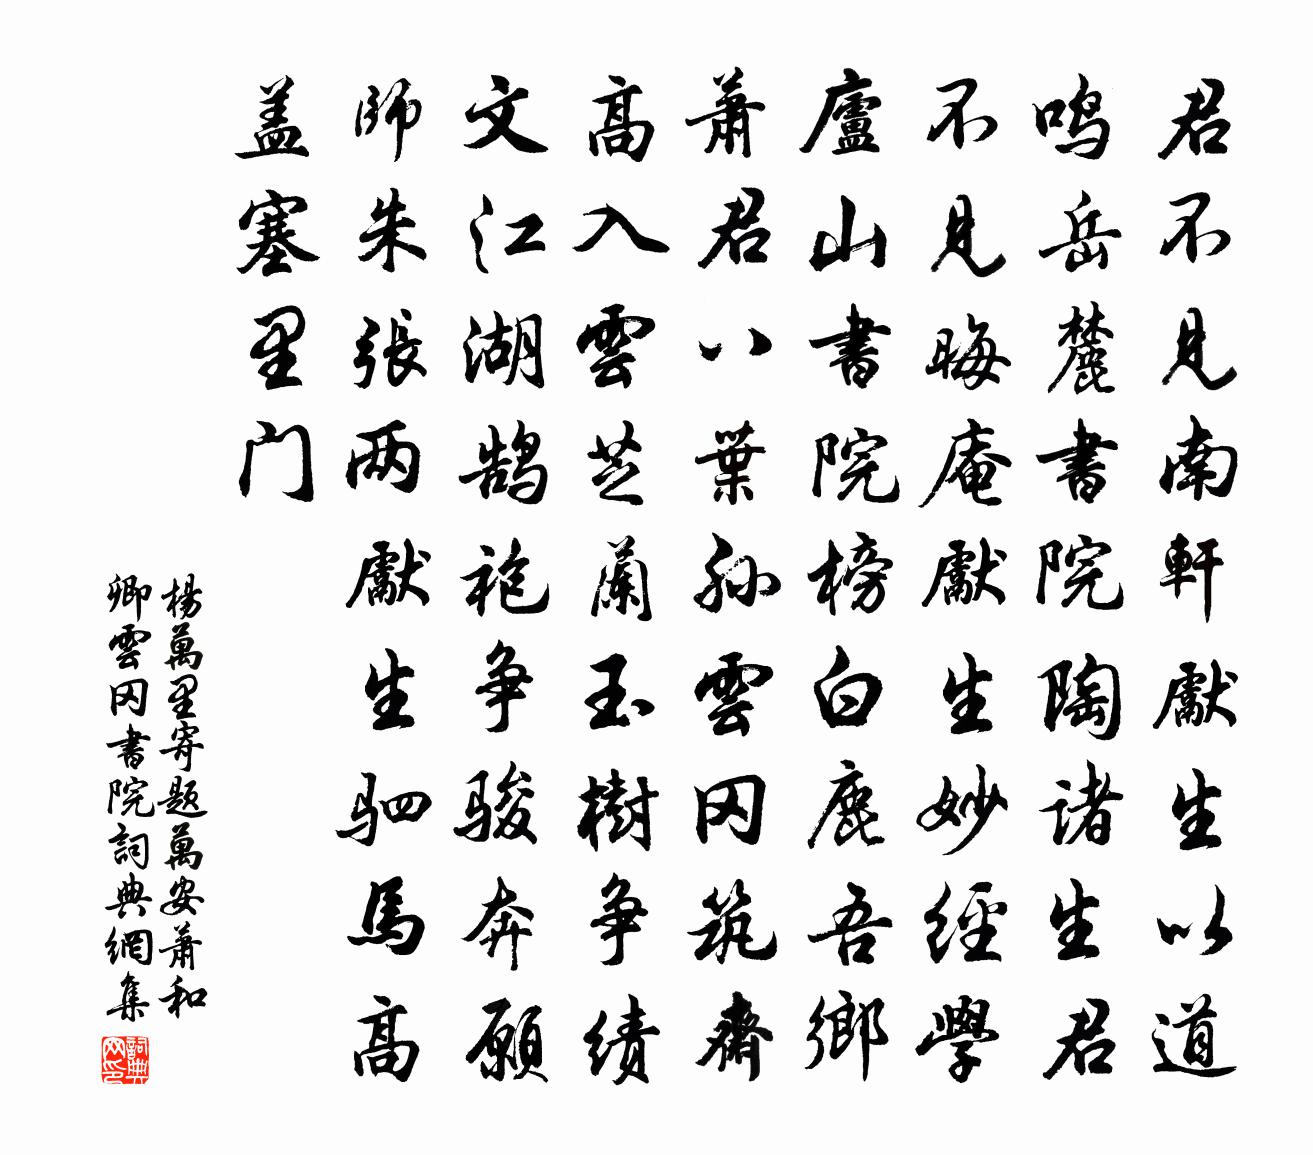 君不见南軒獻生以道
鸣岳麓書院陶诸生君
不见晦庵獻生妙經學
廬山書院榜白鹿吾鄉
萧君八葉孙雲冈筑齋
高入雲芝蘭玉樹争绩
文江湖鹄袍争骏奔願
師朱張两獻生驷馬高
盖塞里门
楊萬里寄题萬安萧和
卿雲冈書院詞典網集
詞典网印